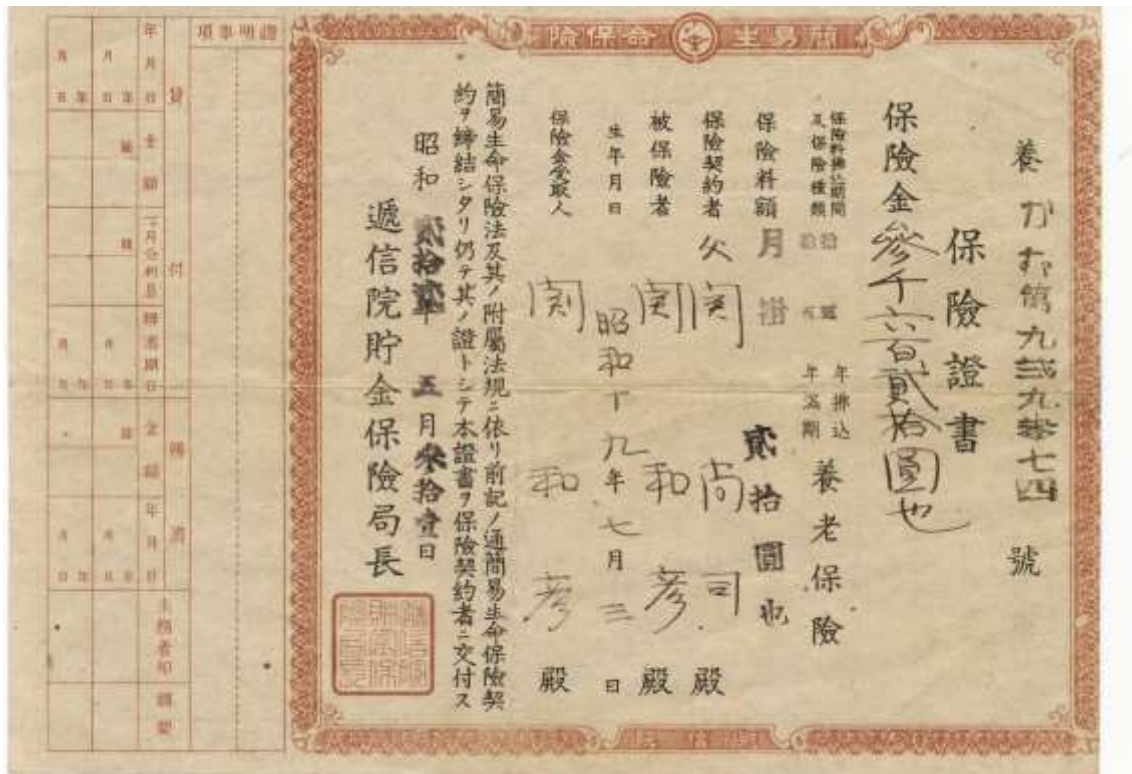 簡易生命保險
養 かお第九貳九零七四 號
保險證書
保險金參千六百貳拾圓也
保險料拂込期間
及保險種類
年拂込
年滿期
養老保險
保險料額 月 貳拾圓也
保險契約者 父 関 尚司 殿
被保險者 関 和彦 殿
生年月日 昭和十九年七月三日
保險金受取人 関 和彦 殿
簡易生命保險法及其ノ附屬法規ニ依リ前記ノ通簡易生命保險契
約ヲ締結シタリ仍テ其ノ證トシテ本證書ヲ保險契約者ニ交付ス
昭和貳拾貳年五月參拾壹日
遞信院貯金保險局長
證明事項
貸付
年月日
金額
辨濟期日
金額
年月日
主務者印
摘要